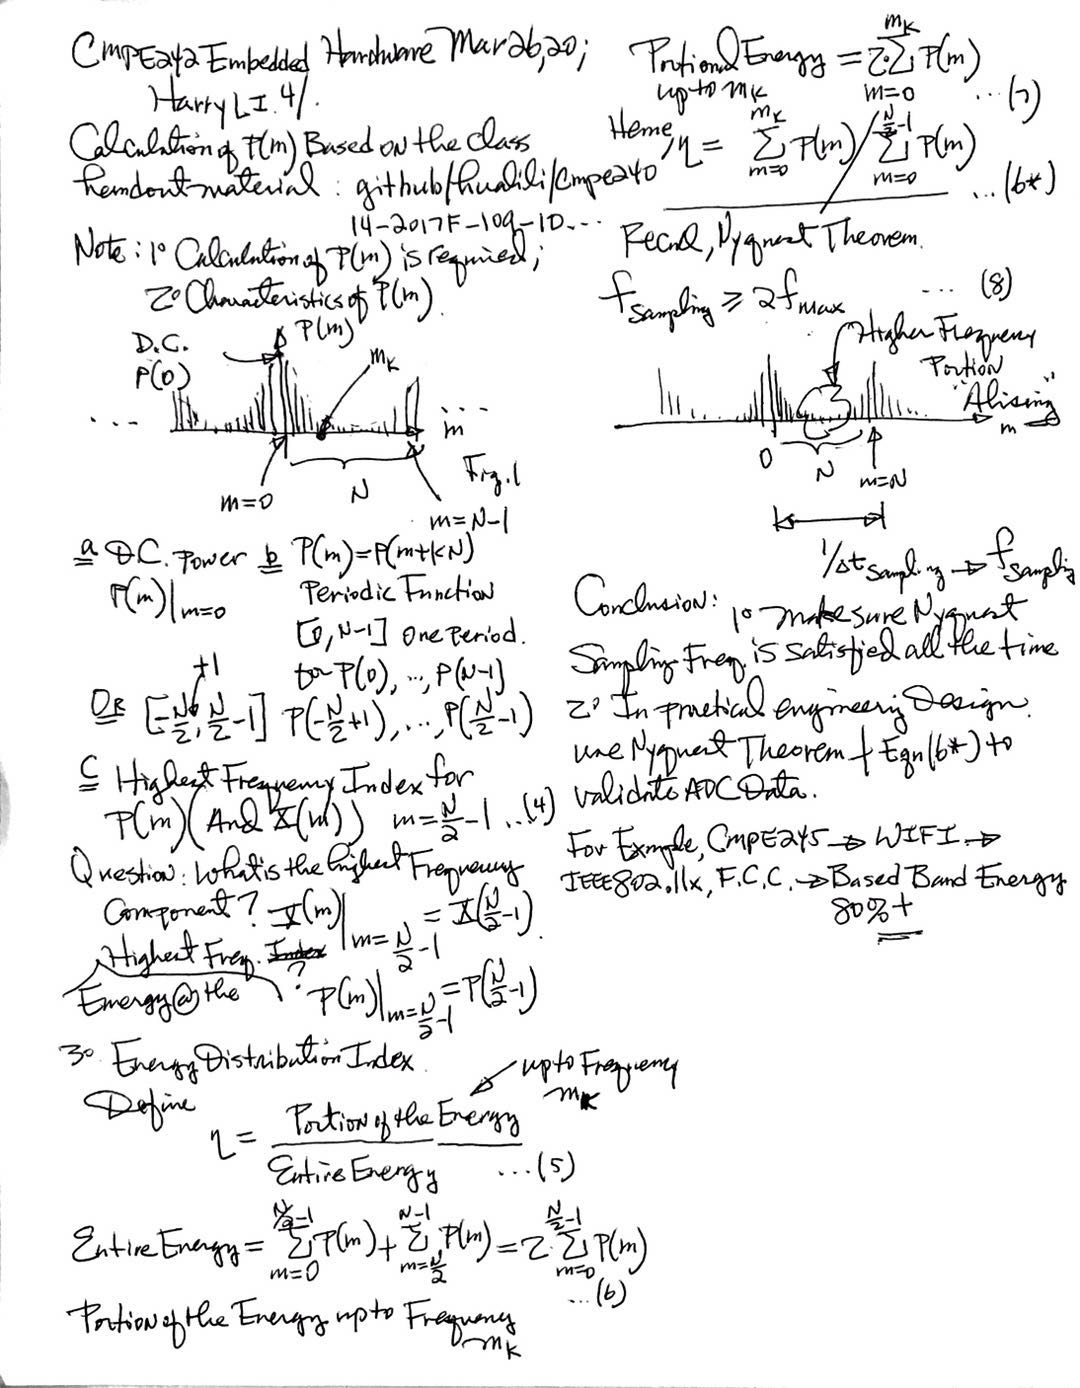 CMPE242 Embedded Hardware Mar 26, 20;
Harry LI. 4/.
Calculation of P(m) Based on the class
handout material : github/hualili/Cmpe240
14-2017F-109-10...
Note: 1° Calculation of P(m) is required;
2° Characteristics of P(m)
D.C.
P(0)
P(m)
mK
...
...
m
m=0
N
m=N-1
Fig.1
a D.C. Power
P(m)|m=0
b P(m)=P(m+kN)
Periodic Function
[0, N-1] one Period.
for P(0), ..., P(N-1)
+1
OR [-N/2, N/2-1] P(-N/2+1), ..., P(N/2-1)
c Highest Frequency Index for
P(m) (And X(m)) m=N/2-1 ...(4)
Question: What is the highest Frequency
Component? X(m)|m=N/2-1 = X(N/2-1)
Highest Freq. Index
Energy @ the ? P(m)|m=N/2-1 = P(N/2-1)
3° Energy Distribution Index
Define
up to Frequency
mK
η = Portion of the Energy
Entire Energy ...(5)
Entire Energy = N/2-1 Σ m=0 P(m) + N-1 Σ m=N/2 P(m) = 2·N/2-1 Σ m=0 P(m)
...(6)
Portion of the Energy up to Frequency
mK
Portional Energy = 2·mK Σ m=0 P(m)
up to mK
...(7)
Hence, η = mK Σ m=0 P(m) / N/2-1 Σ m=0 P(m)
...(6*)
Recall, Nyquest Theorem.
fsampling ≥ 2fmax ... (8)
Higher Frequency
Portion
"Alising"
m
0
N
m=N
1/Δt sampling → fsampling
Conclusion: 1° make sure Nyquest
Sampling Freq. is satisfied all the time
2° In practical engineering Design.
use Nyquest Theorem + Eqn(6*) to
validate ADC Data.
For Exmple, CMPE245 → WIFI →
IEEE802.11x, F.C.C. → Based Band Energy
80%+